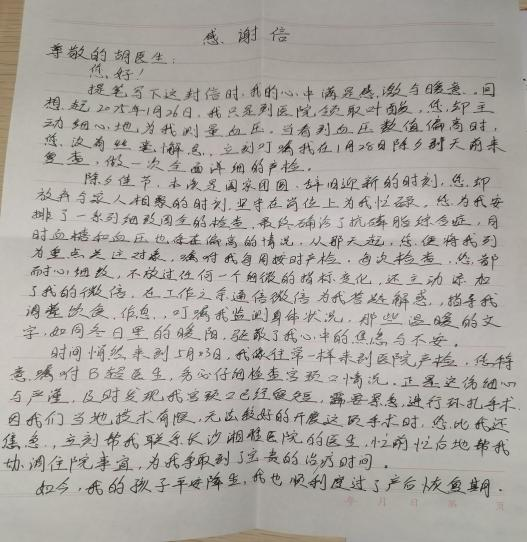 感谢信
尊敬的胡医生：
您好！
提笔写下这封信时，我的心中满是感激与暖意。回
想起2025年1月26日，我只是到医院领取叶酸，您却主
动细心地为我测量血压。当看到血压数值偏高时，
您没有丝毫懈怠，立刻叮嘱我在1月28日除夕到天前来
复查，做一次全面详细的产检。
除夕佳节，本该是阖家团圆、辞旧迎新的时刻，您却
放弃与家人相聚的时刻，坚守在岗位上为我忙碌。您为我安
排了一系列细致周全的检查，最终确诊了抗磷脂综合症，同
时血糖和血压也存在偏高的情况，从那天起，您便将我列
为重点关注对象，嘱咐我每周按时产检，每次检查，您都
耐心细致，不放过任何一个细微的指标变化，还主动添加
了我的微信，在工作之余通信微信为我答疑解惑，指导我
调整饮食、作息，叮嘱我监测身体状况，那些温暖的文
字，如同冬日里的暖阳，驱散了我心中的焦虑与不安。
时间悄然来到5月23日，我像往常一样来到医院产检，您特
意嘱咐B超医生，务必仔细检查宫颈口情况。正是这份细心
与严谨，及时发现我宫颈口已经，需要紧急进行环扎手术。
因我们当地技术有限，无法较好的开展这项手术时，您比我还
焦急，立刻帮我联系长沙湘雅医院的医生，忙前忙后地帮我
协调住院事宜，为我争取到了宝贵的治疗时间。
如今，我的孩子平安降生，我也顺利度过了产后恢复期。
年 月 日 第 页